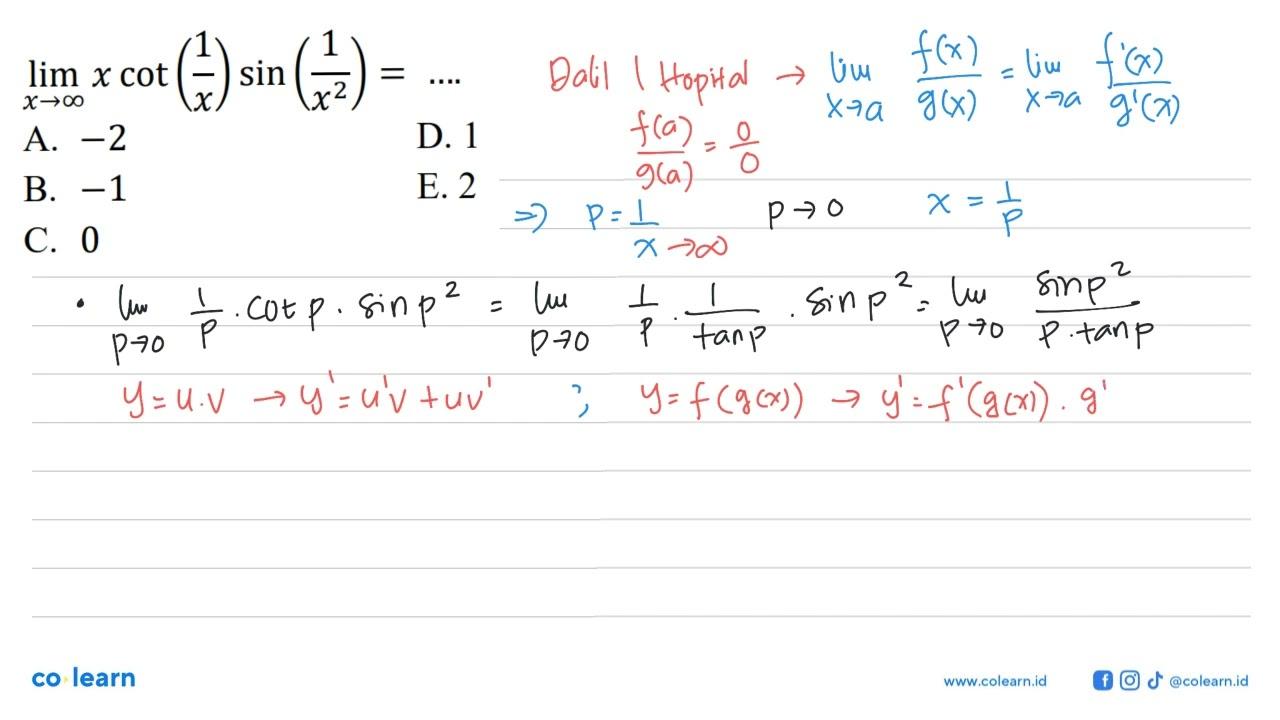 lim x→∞ x cot (1/x) sin (1/x²) = ....
A. −2
D. 1
B. −1
E. 2
C. 0
Dalil l Hopital → lim x→a f(x)/g(x) = lim x→a f'(x)/g'(x)
f(a)/g(a) = 0/0
⇒ p = 1/x →∞ p→0 x = 1/p
• lim p→0 1/p . cot p . sin p² = lim p→0 1/p . 1/tan p . sin p² = lim p→0 sin p²/p . tan p
y = u.v → y' = u'v + uv' ; y = f(g(x)) → y' = f'(g(x)) . g'
co learn
www.colearn.id
@colearn.id